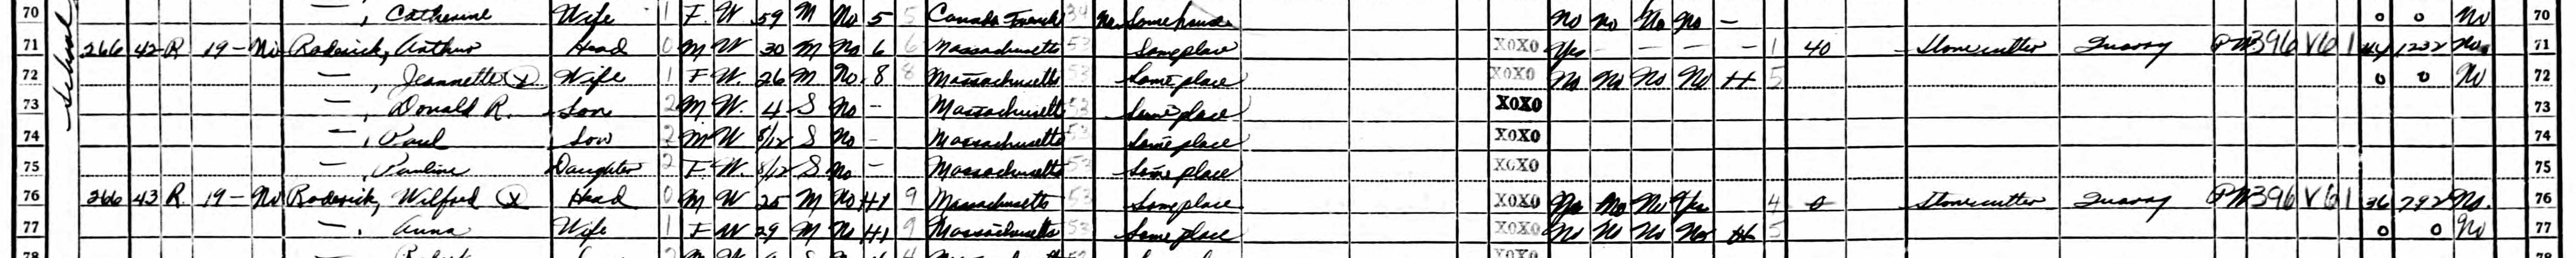 70 —, Catherine Wife 1 F W 59 M No 5 5 Canada French 34 Na Same house No No No No — 0 0 No 70
71 266 42 R 19 — No Roderick, Arthur Head 0 M W 30 M No 6 6 Massachusetts 53 Same place X0X0 Yes — — — — 1 40 Stonecutter Quarry PW 396 V6 1 44 1232 No 71
72 —, Jeannette Ⓧ Wife 1 F W 26 M No 8 8 Massachusetts 53 Same place X0X0 No No No No H 5 0 0 No 72
73 —, Donald R. Son 2 M W 4 S No — Massachusetts 53 Same place X0X0 73
74 —, Paul Son 2 M W 8/12 S No — Massachusetts 53 Same place X0X0 74
75 —, Pauline Daughter 2 F W 8/12 S No — Massachusetts 53 Same place X0X0 75
76 266 43 R 19 — No Roderick, Wilford Ⓧ Head 0 M W 25 M No H1 9 Massachusetts 53 Same place X0X0 No No No Yes 4 0 Stonecutter Quarry PW 396 V6 1 36 792 No 76
77 —, Anna Wife 1 F W 29 M No H1 9 Massachusetts 53 Same place X0X0 No No No No H 5 0 0 No 77
78